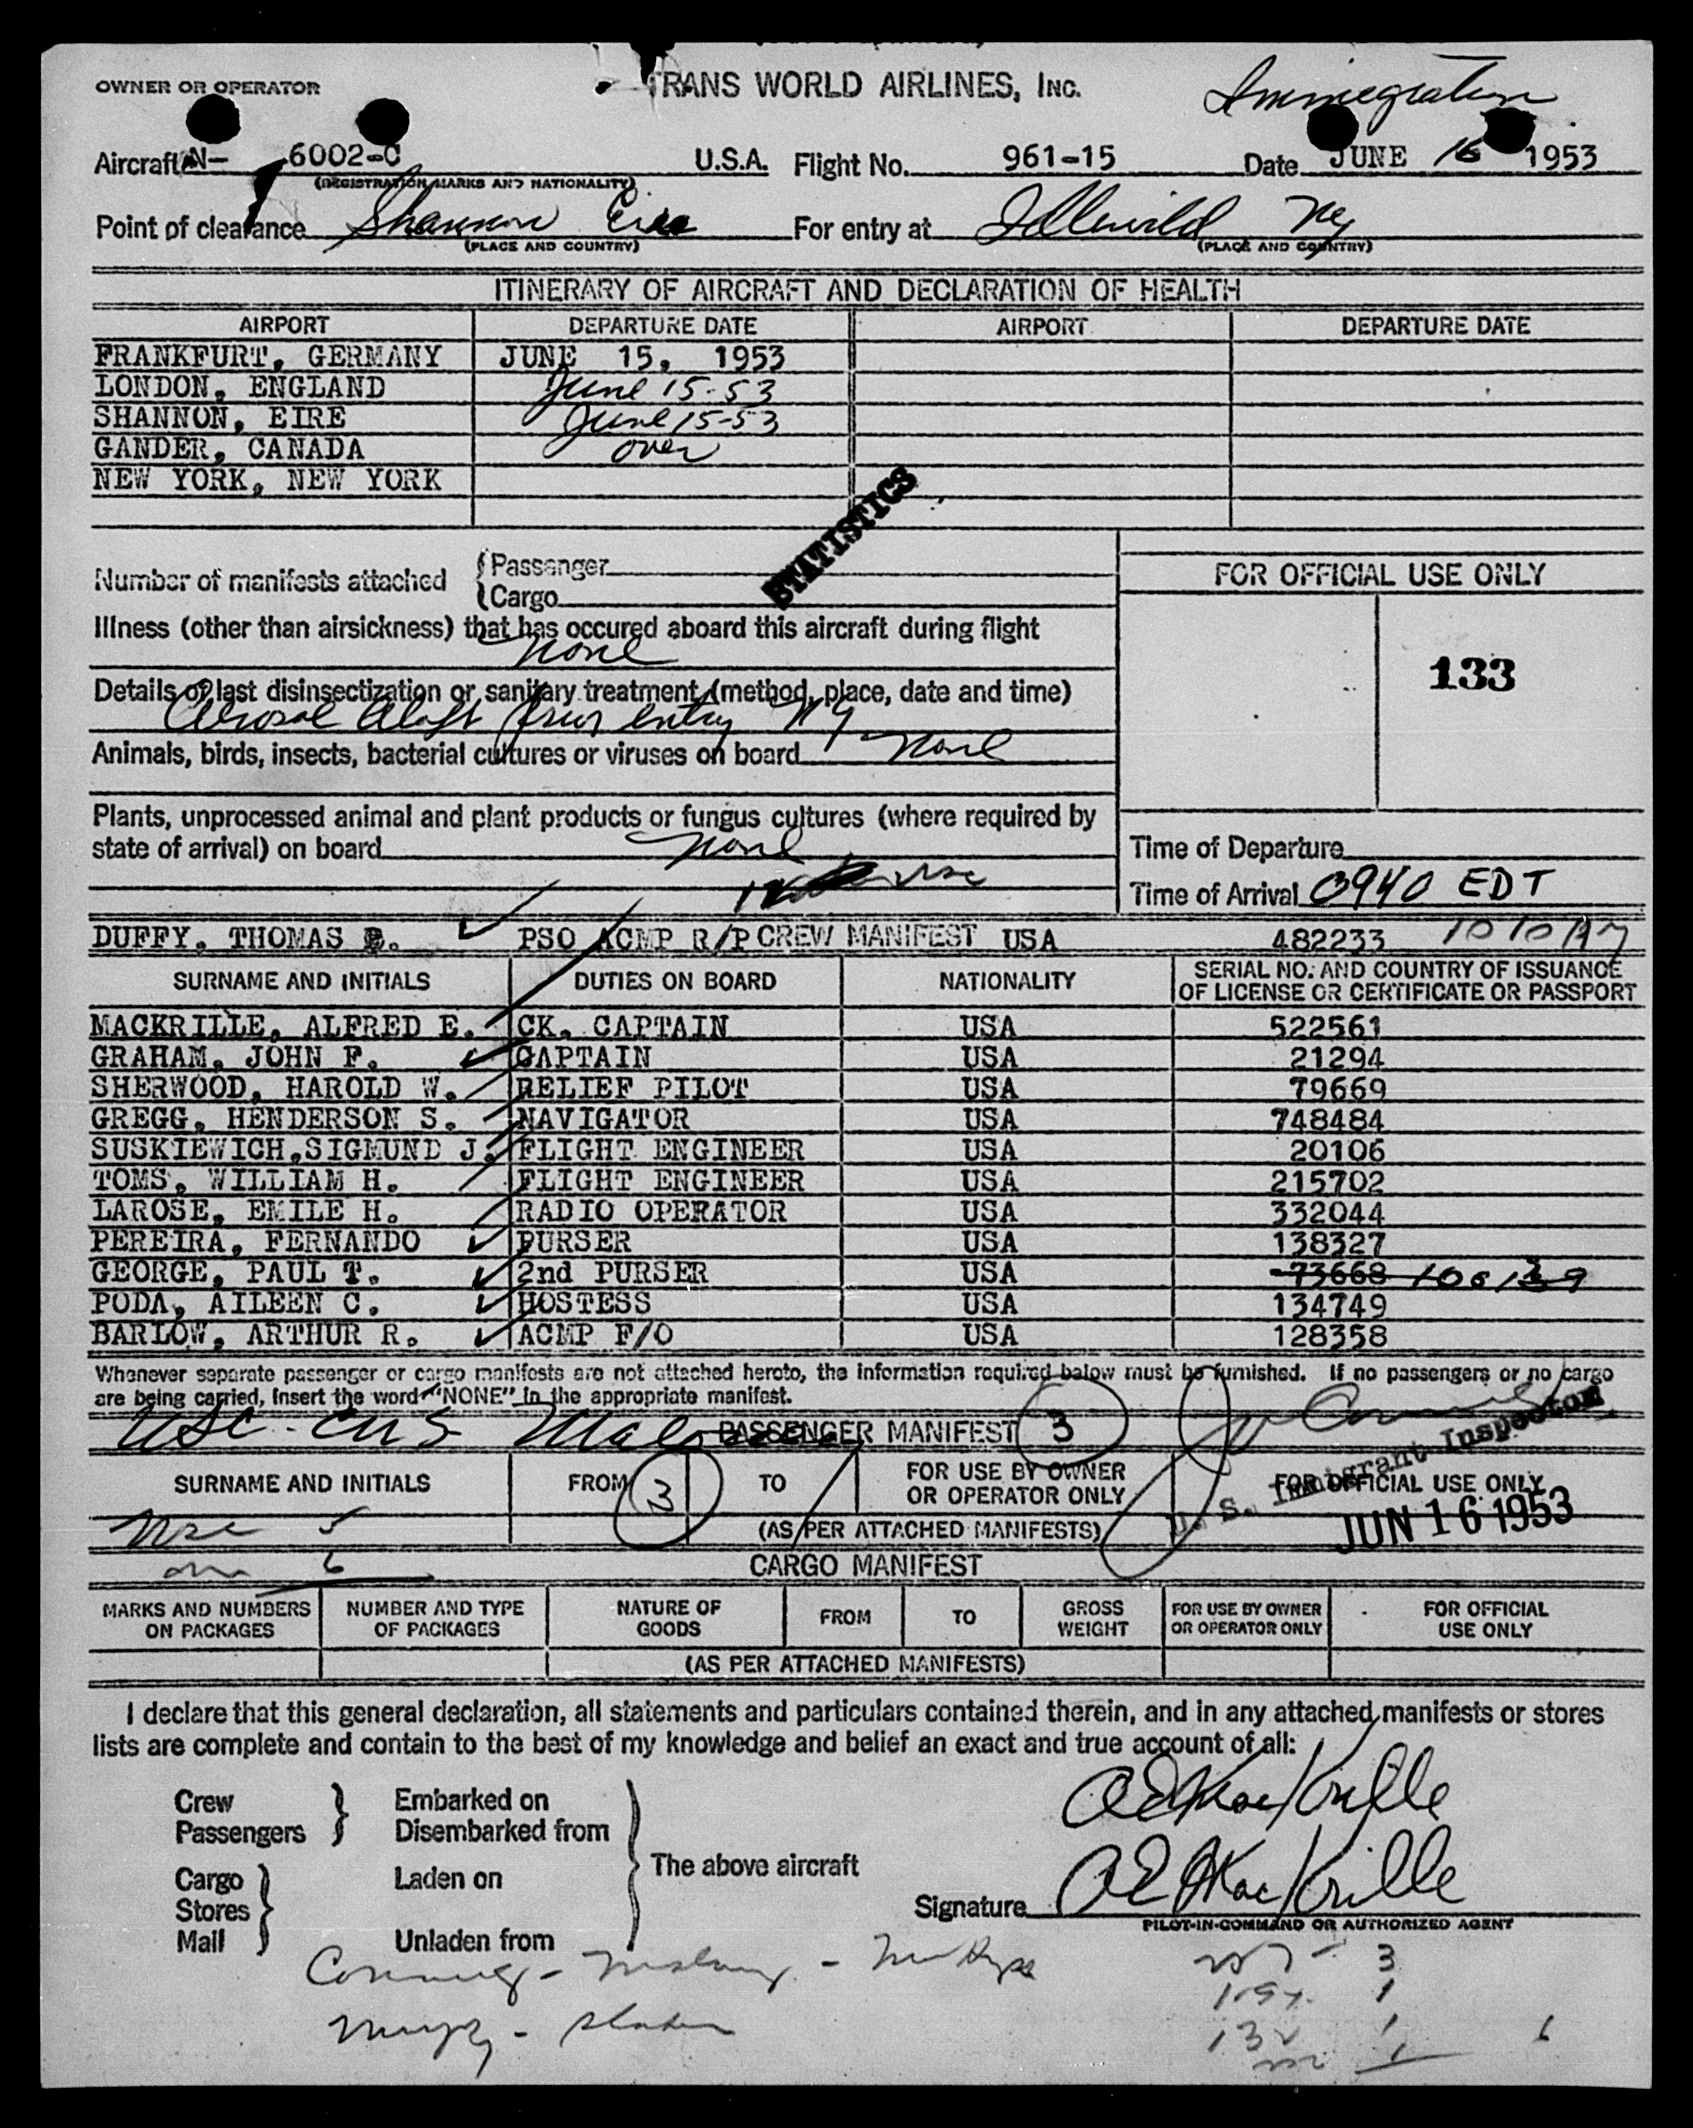 TRANS WORLD AIRLINES, INC.
OWNER OR OPERATOR
Immigration
Aircraft N- 6002-C U.S.A. Flight No. 961-15 Date JUNE 16 1953
(REGISTRATION MARKS AND NATIONALITY)
Point of clearance Shannon Eire For entry at Idlewild NY
(PLACE AND COUNTRY) (PLACE AND COUNTRY)
ITINERARY OF AIRCRAFT AND DECLARATION OF HEALTH
AIRPORT DEPARTURE DATE AIRPORT DEPARTURE DATE
FRANKFURT, GERMANY JUNE 15, 1953
LONDON, ENGLAND June 15-53
SHANNON, EIRE June 15-53
GANDER, CANADA over
NEW YORK, NEW YORK
STATISTICS
Number of manifests attached { Passenger
{ Cargo
FOR OFFICIAL USE ONLY
Illness (other than airsickness) that has occured aboard this aircraft during flight
None
133
Details of last disinsectization or sanitary treatment (method, place, date and time)
Aerosol Aloft prior entry NY
Animals, birds, insects, bacterial cultures or viruses on board None
Plants, unprocessed animal and plant products or fungus cultures (where required by
state of arrival) on board None
Time of Departure
Time of Arrival 0940 EDT
DUFFY, THOMAS E. PSO ACMP R/P CREW MANIFEST USA 482233 1010 AM
SURNAME AND INITIALS DUTIES ON BOARD NATIONALITY SERIAL NO. AND COUNTRY OF ISSUANCE
OF LICENSE OR CERTIFICATE OR PASSPORT
MACKRILLE, ALFRED E. CK. CAPTAIN USA 522561
GRAHAM, JOHN F. CAPTAIN USA 21294
SHERWOOD, HAROLD W. RELIEF PILOT USA 79669
GREGG, HENDERSON S. NAVIGATOR USA 748484
SUSKIEWICH,SIGMUND J. FLIGHT ENGINEER USA 20106
TOMS, WILLIAM H. FLIGHT ENGINEER USA 215702
LAROSE, EMILE H. RADIO OPERATOR USA 332044
PEREIRA, FERNANDO PURSER USA 138327
GEORGE, PAUL T. 2nd PURSER USA 73668
PODA, AILEEN C. HOSTESS USA 134749
BARLOW, ARTHUR R. ACMP F/O USA 128358
Whenever separate passenger or cargo manifests are not attached hereto, the information required below must be furnished. If no passengers or no cargo
are being carried, insert the word "NONE" in the appropriate manifest.
PASSENGER MANIFEST 3
U. S. Immigrant Inspector
SURNAME AND INITIALS FROM 3 TO FOR USE BY OWNER
OR OPERATOR ONLY FOR OFFICIAL USE ONLY
(AS PER ATTACHED MANIFESTS) JUN 16 1953
CARGO MANIFEST
MARKS AND NUMBERS
ON PACKAGES NUMBER AND TYPE
OF PACKAGES NATURE OF
GOODS FROM TO GROSS
WEIGHT FOR USE BY OWNER
OR OPERATOR ONLY FOR OFFICIAL
USE ONLY
(AS PER ATTACHED MANIFESTS)
I declare that this general declaration, all statements and particulars contained therein, and in any attached manifests or stores
lists are complete and contain to the best of my knowledge and belief an exact and true account of all:
Crew Embarked on
Passengers Disembarked from
The above aircraft
Cargo Laden on
Stores
Mail Unladen from
AE MacKrille
Signature AE MacKrille
PILOT-IN-COMMAND OR AUTHORIZED AGENT